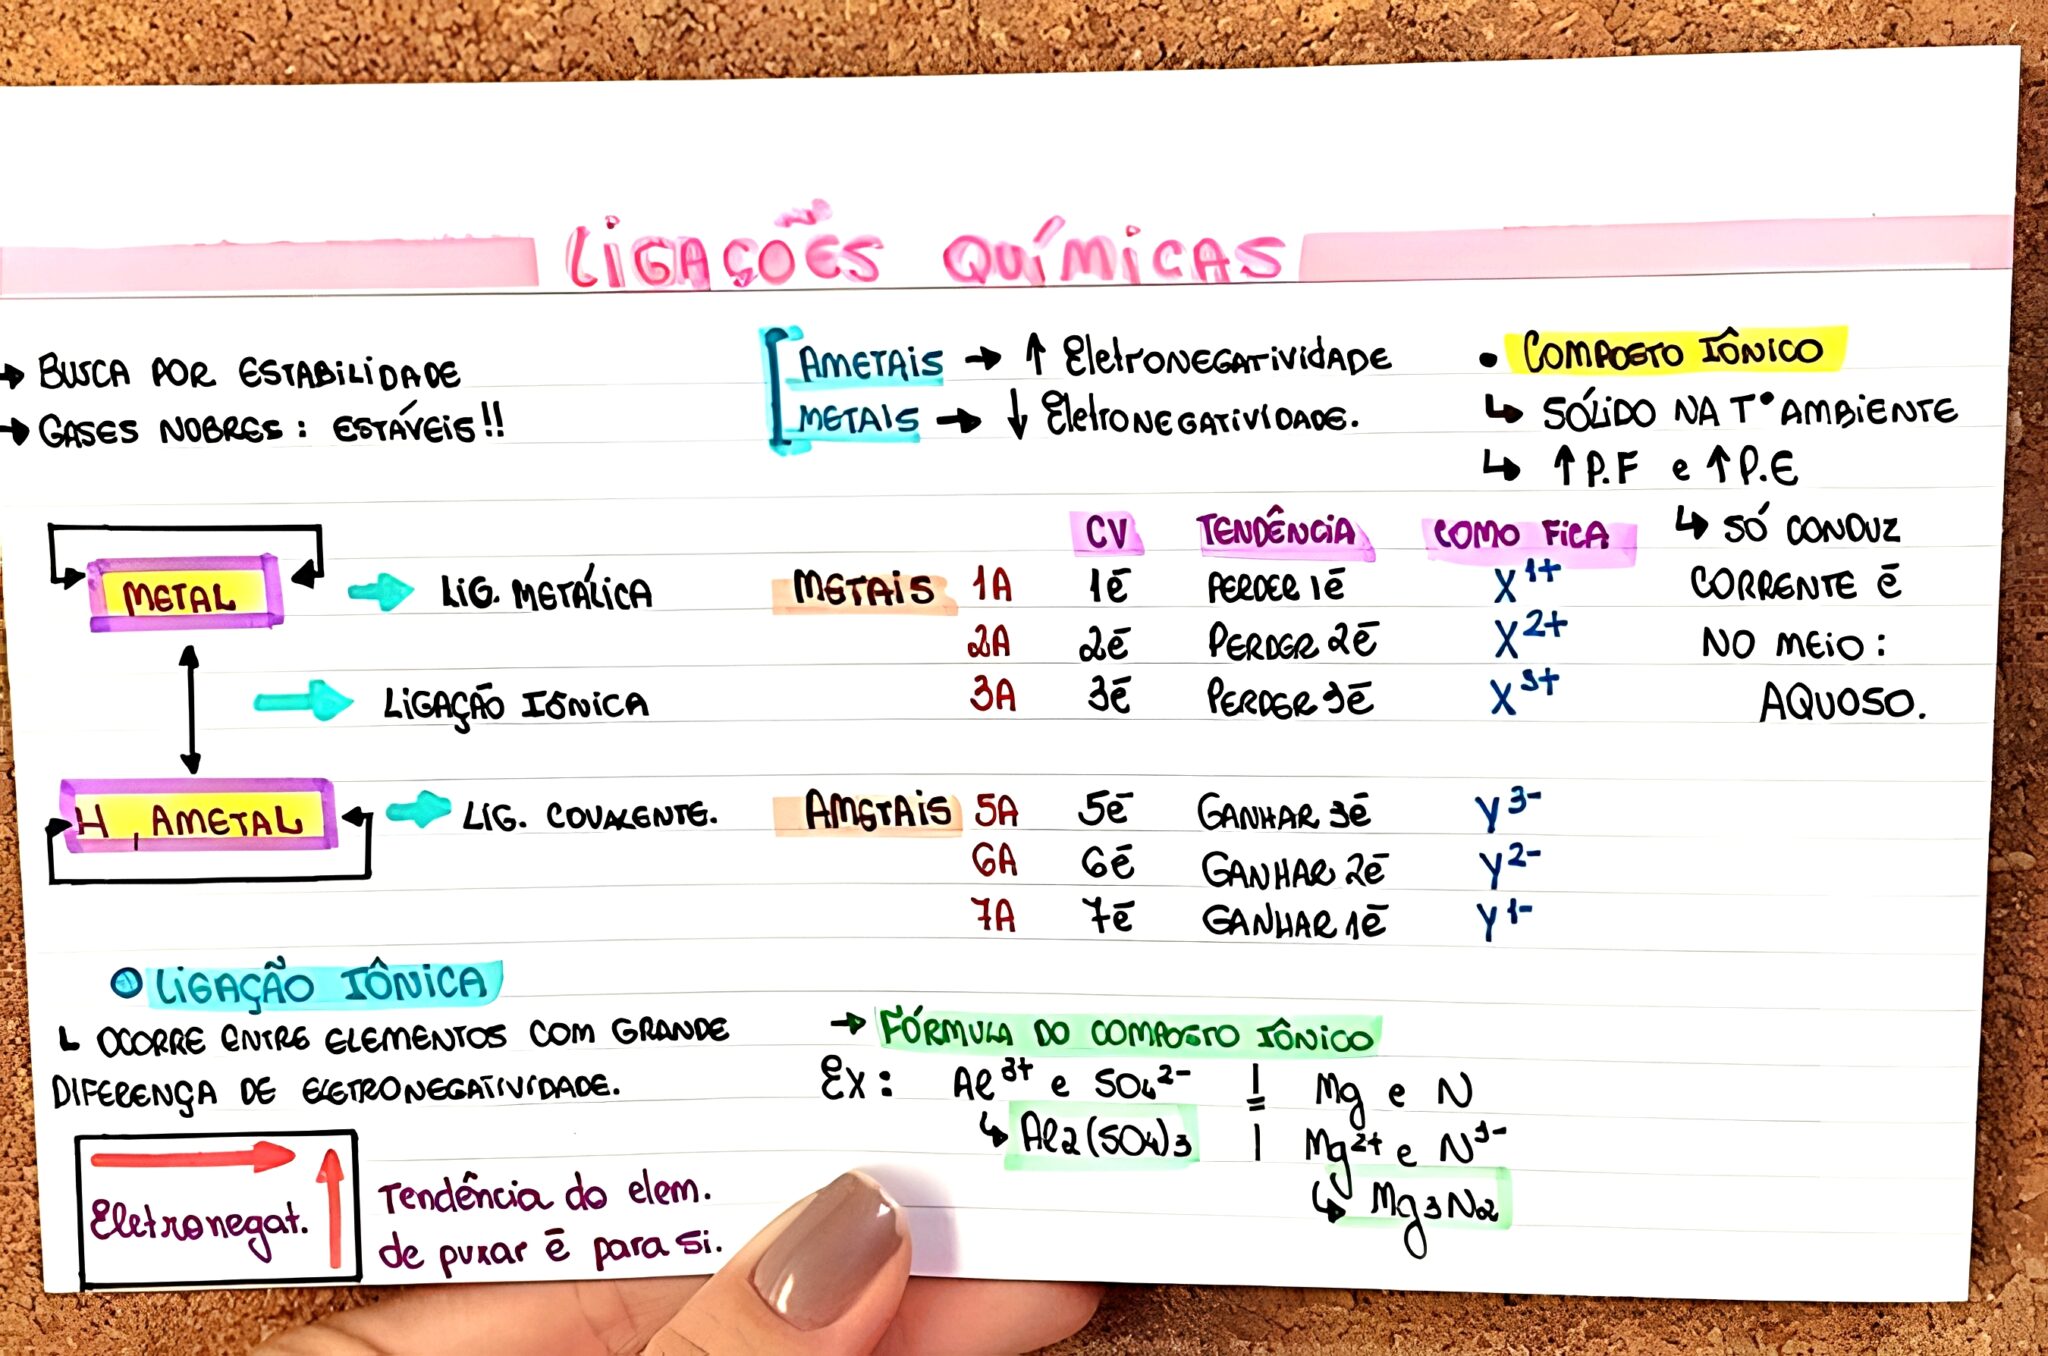 LIGAÇÕES QUÍMICAS
→ BUSCA POR ESTABILIDADE
→ GASES NOBRES: ESTÁVEIS!!
AMETAIS → ↑ EletroNEGAtividADE
METAIS → ↓ EletroNEGATIVIDADE.
• COMPOSTO IÔNICO
↳ SÓLIDO NA T° AMBIENTE
↳ ↑ P.F e ↑ P.E
↳ SÓ CONDUZ
CORRENTE ē
NO MEIO:
AQUOSO.
METAL → LIG. METÁLICA
LIGAÇÃO IÔNICA
H, AMETAL → LIG. COVALENTE.
CV TENDÊNCIA COMO FICA
METAIS 1A 1ē PERDER 1ē X¹⁺
2A 2ē PERDER 2ē X²⁺
3A 3ē PERDER 3ē X³⁺
AMETAIS 5A 5ē GANHAR 3ē Y³⁻
6A 6ē GANHAR 2ē Y²⁻
7A 7ē GANHAR 1ē Y¹⁻
LIGAÇÃO IÔNICA
↳ OCORRE ENTRE ELEMENTOS COM GRANDE
DIFERENÇA DE ELETRONEGATIVIDADE.
Eletronegat.
Tendência do elem.
de puxar ē para si.
→ FÓRMULA DO COMPOSTO IÔNICO
Ex: Al³⁺ e SO₄²⁻ | Mg e N
↳ Al₂(SO₄)₃ | Mg²⁺ e N³⁻
↳ Mg₃N₂